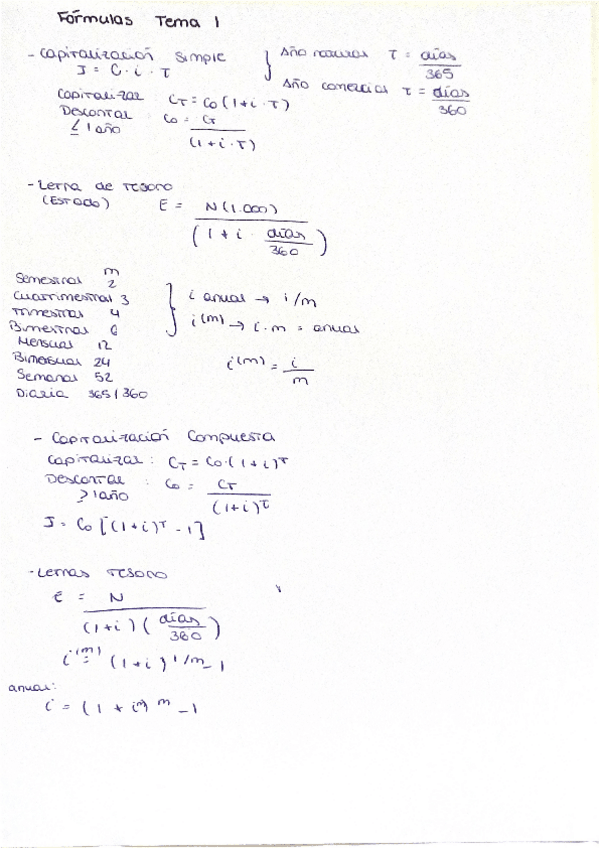 Fórmulas Tema 1
- Capitalización simple } Año natural T = días / 365
I = C · i · T
Año comercial T = días / 360
Capitalizar : CT = Co (1 + i · T)
Descontar : Co = CT / (1 + i · T)
≤ 1 año
- Letra de tesoro
(Estado) E = N (1.000) / (1 + i · días / 360)
m
Semestral 2
Cuatrimestral 3 } i anual → i/m
Trimestral 4
Bimestral 6 } i(m) → i · m = anual
Mensual 12
Bimensual 24 i(m) = i / m
Semanal 52
Diaria 365/360
- Capitalización Compuesta
Capitalizar : CT = Co · (1 + i)^T
Descontar : Co = CT / (1 + i)^T
≥ 1 año
I = Co [(1 + i)^T - 1]
- Letras Tesoro
E = N / (1 + i) (días / 360)
i(m) = (1 + i)^1/m - 1
anual:
i = (1 + i(m))^m - 1